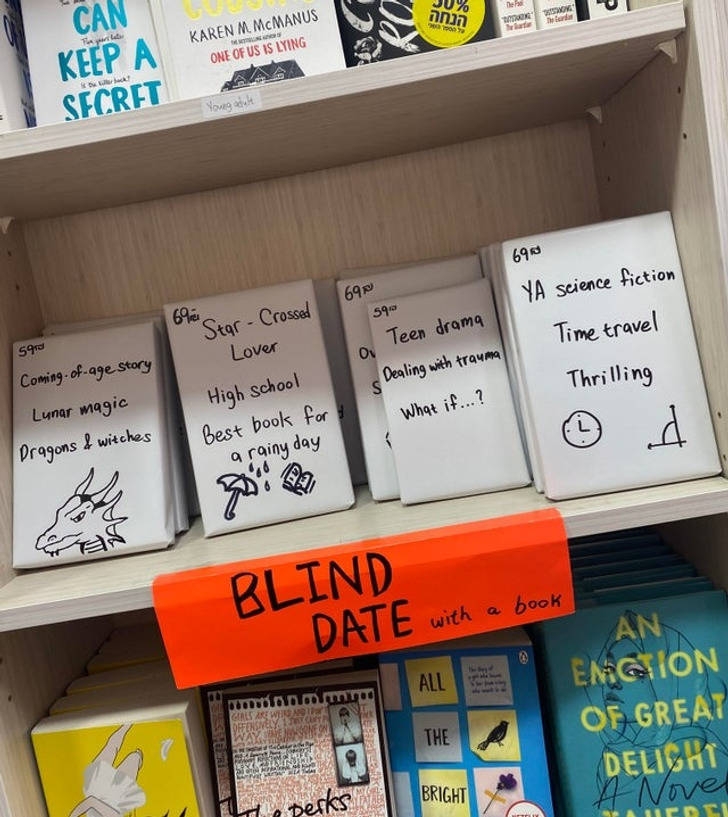 CAN
KEEP A
SECRET
KAREN M. McMANUS
THE BESTSELLING AUTHOR OF
ONE OF US IS LYING
50%
הנחה
על הספר השני
"OUTSTANDING."
The Guardian
"OUTSTANDING."
The Guardian
Young adult
59₪
Coming-of-age story
Lunar magic
Dragons & witches
69₪
Star-Crossed
Lover
High school
Best book for
a rainy day
69₪
59₪
Teen drama
Dealing with trauma
What if...?
69₪
YA science fiction
Time travel
Thrilling
BLIND
DATE with a book
the perks
ALL
THE
BRIGHT
NETFLIX
AN
EMOTION
OF GREAT
DELIGHT
A Novel